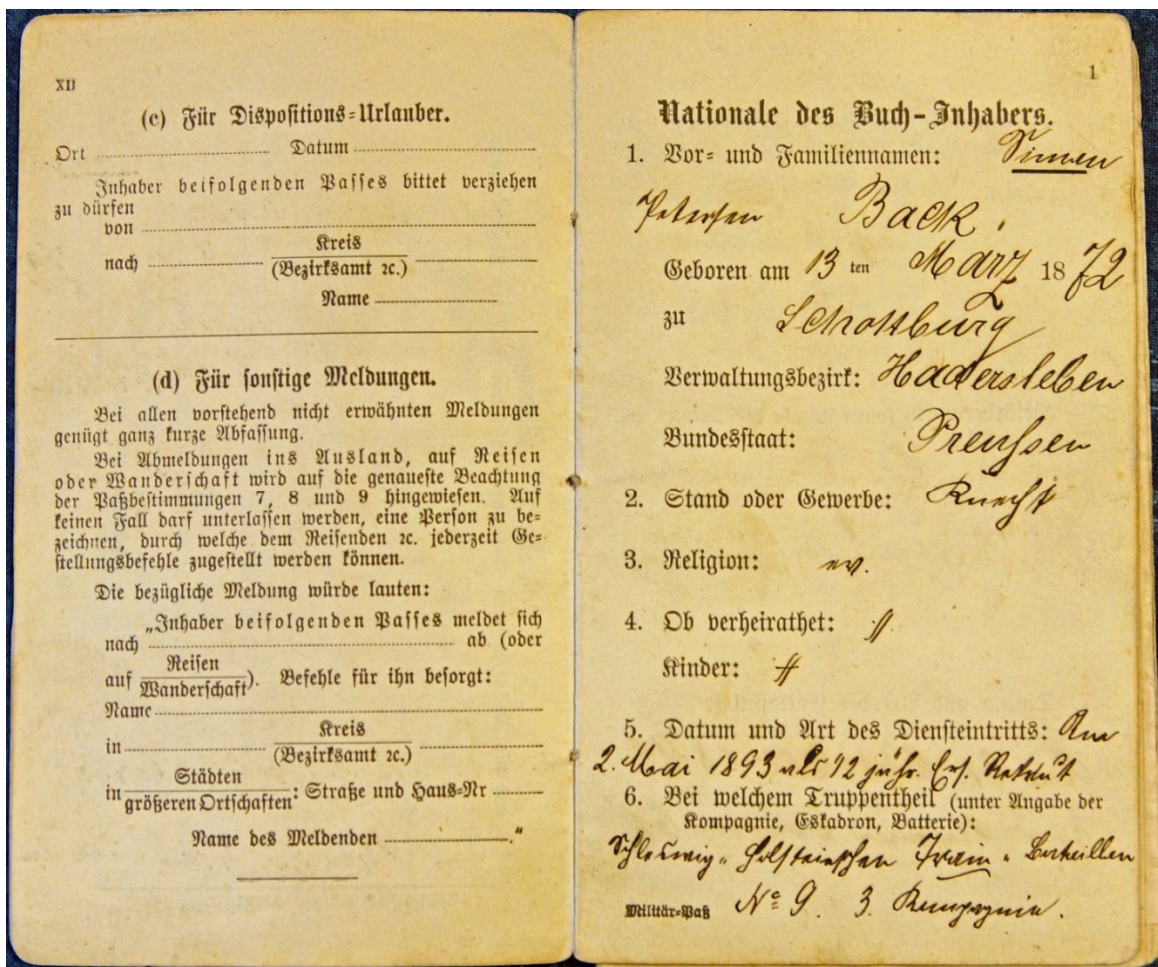 XII
(c) Für Dispositions-Urlauber.
Ort ........ Datum ........
Inhaber beifolgenden Passes bittet verziehen
zu dürfen
von ........
nach ........ Kreis ........
(Bezirksamt ꝛc.)
Name ........
(d) Für sonstige Meldungen.
Bei allen vorstehend nicht erwähnten Meldungen
genügt ganz kurze Abfassung.
Bei Abmeldungen ins Ausland, auf Reisen
oder Wanderschaft wird auf die genaueste Beachtung
der Paßbestimmungen 7, 8 und 9 hingewiesen. Auf
keinen Fall darf unterlassen werden, eine Person zu be-
zeichnen, durch welche dem Reisenden ꝛc. jederzeit Ge-
stellungsbefehle zugestellt werden können.
Die bezügliche Meldung würde lauten:
„Inhaber beifolgenden Passes meldet sich
nach ........ ab (oder
auf Reisen
Wanderschaft). Befehle für ihn besorgt:
Name ........
in ........ Kreis ........
(Bezirksamt ꝛc.)
in Städten
größeren Ortschaften: Straße und Haus-Nr ........
Name des Meldenden ........."
1
Nationale des Buch-Inhabers.
1. Vor- und Familiennamen: Simon
Petersen Back.
Geboren am 13 ten März 1872
zu Schottburg
Verwaltungsbezirk: Hadersleben
Bundesstaat: Preußen
2. Stand oder Gewerbe: Knecht
3. Religion: ev.
4. Ob verheirathet: //
Kinder: //
5. Datum und Art des Diensteintritts: Am
2. Mai 1893 als 1/2 jähr. Ers. Rekrut
6. Bei welchem Truppentheil (unter Angabe der
Kompagnie, Eskadron, Batterie):
Schleswig-Holsteinschen Train-Bataillon
Militär-Paß No 9. 3. Kompagnie.